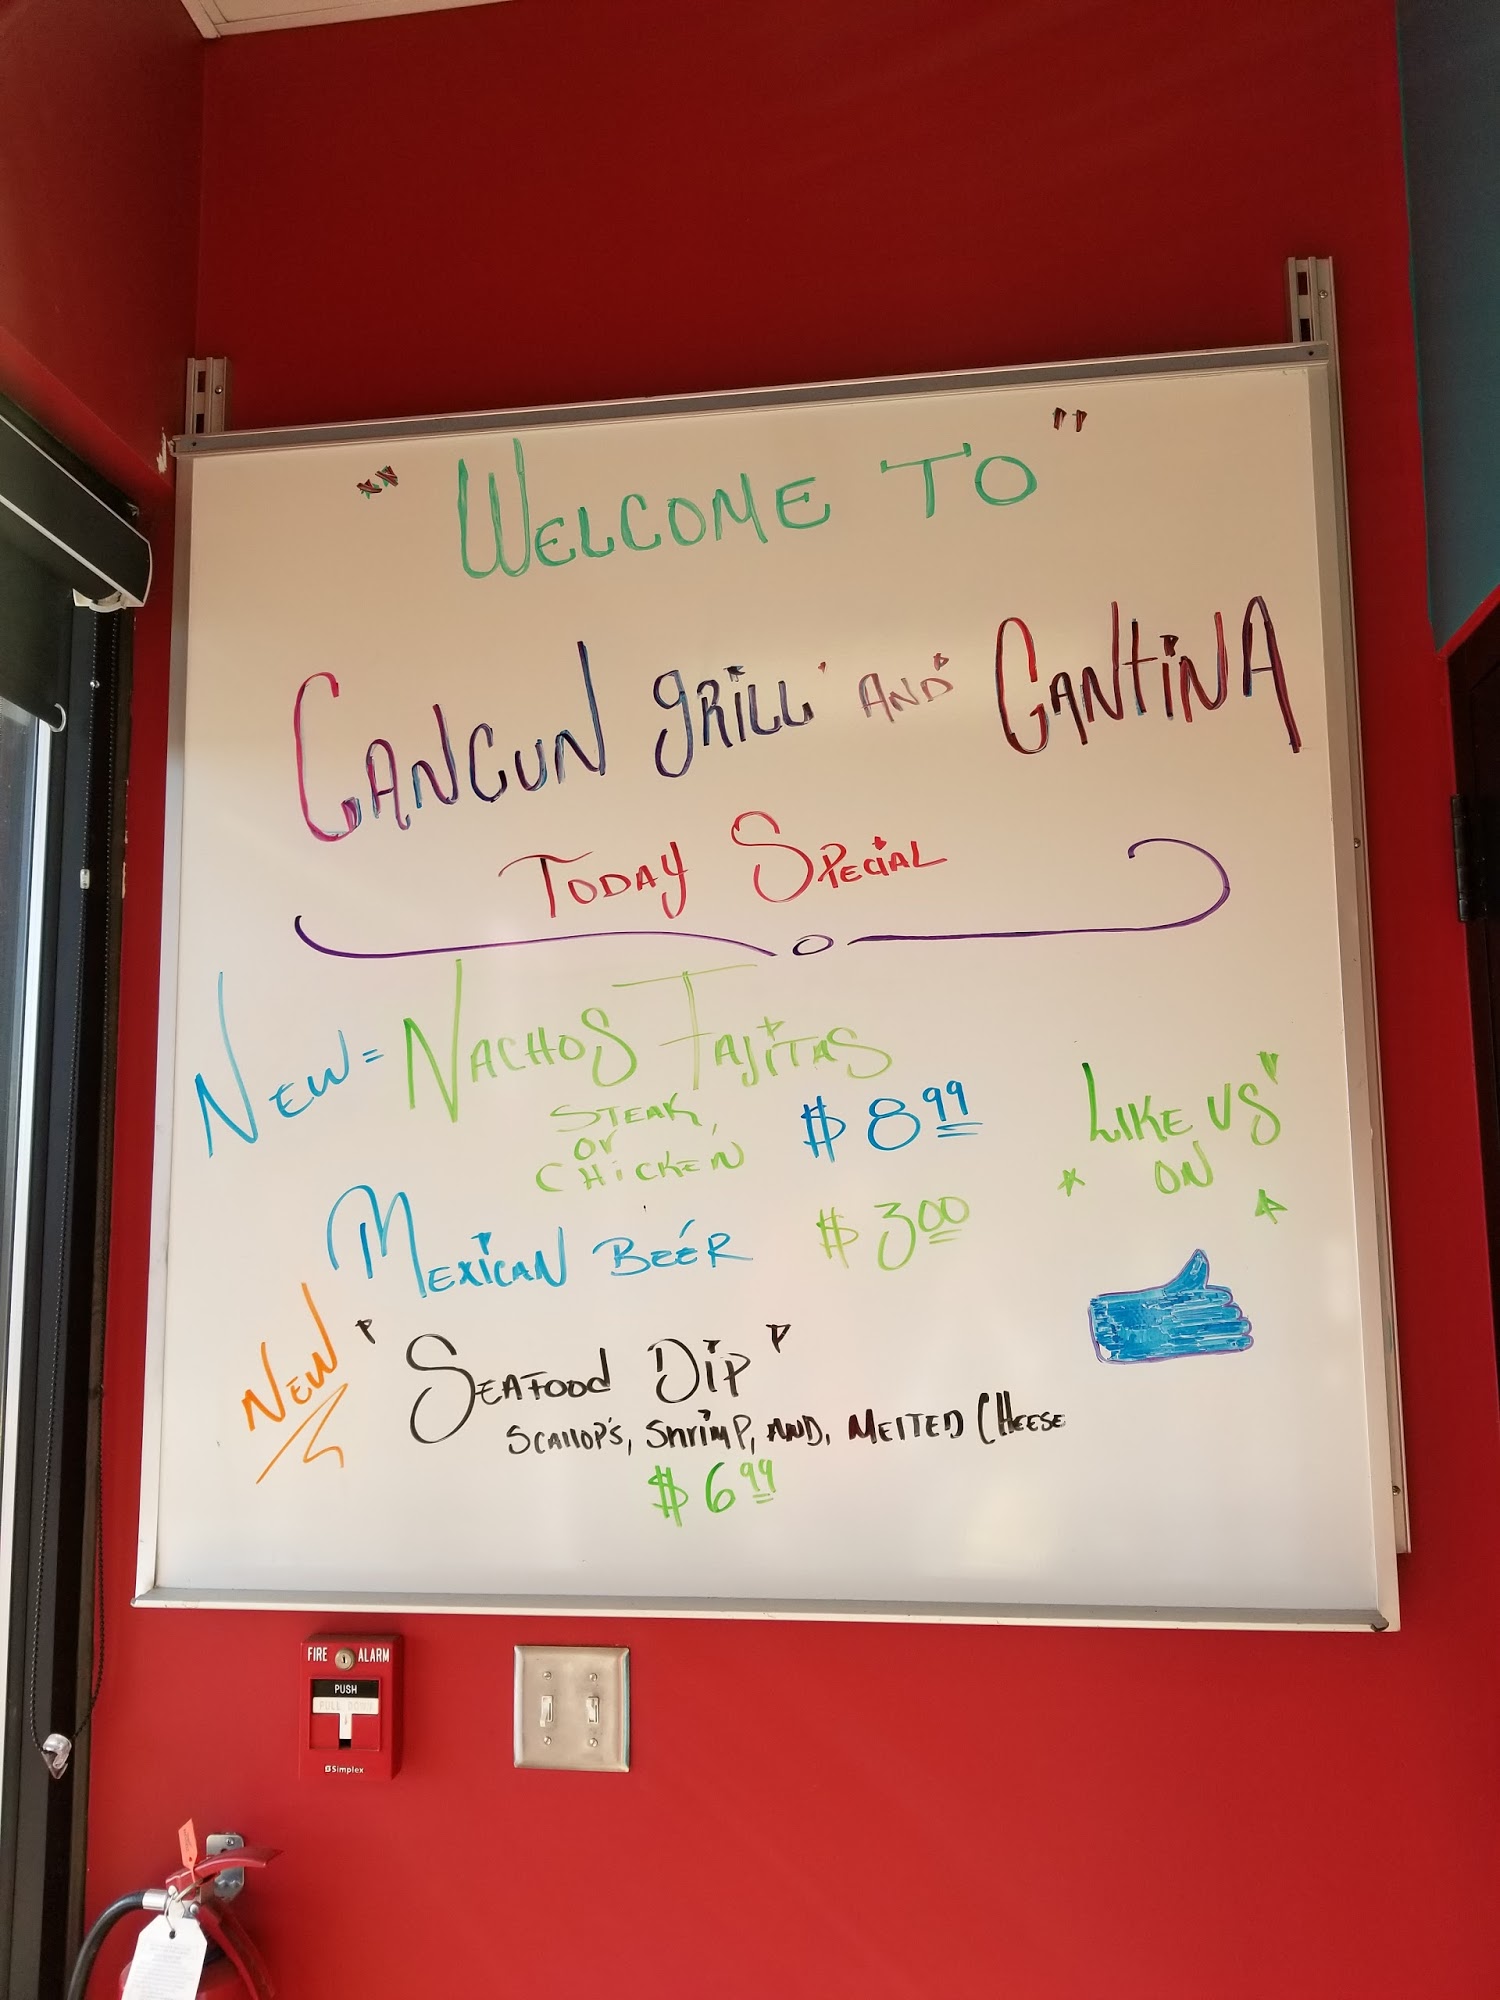 "WELCOME TO"
CANCUN GRILL AND CANTINA
TODAY SPECIAL
NEW = NACHOS FAJITAS
STEAK,
or
CHiCKEN
$8.99
LIKE US"
ON
MEXICAN BEER $3.00
NEW "SEAFOOD DIP"
SCALLOP'S, SHRIMP, AND, MELTED CHEESE
$6.99
FIRE ALARM
PUSH
PULL DOWN
Simplex